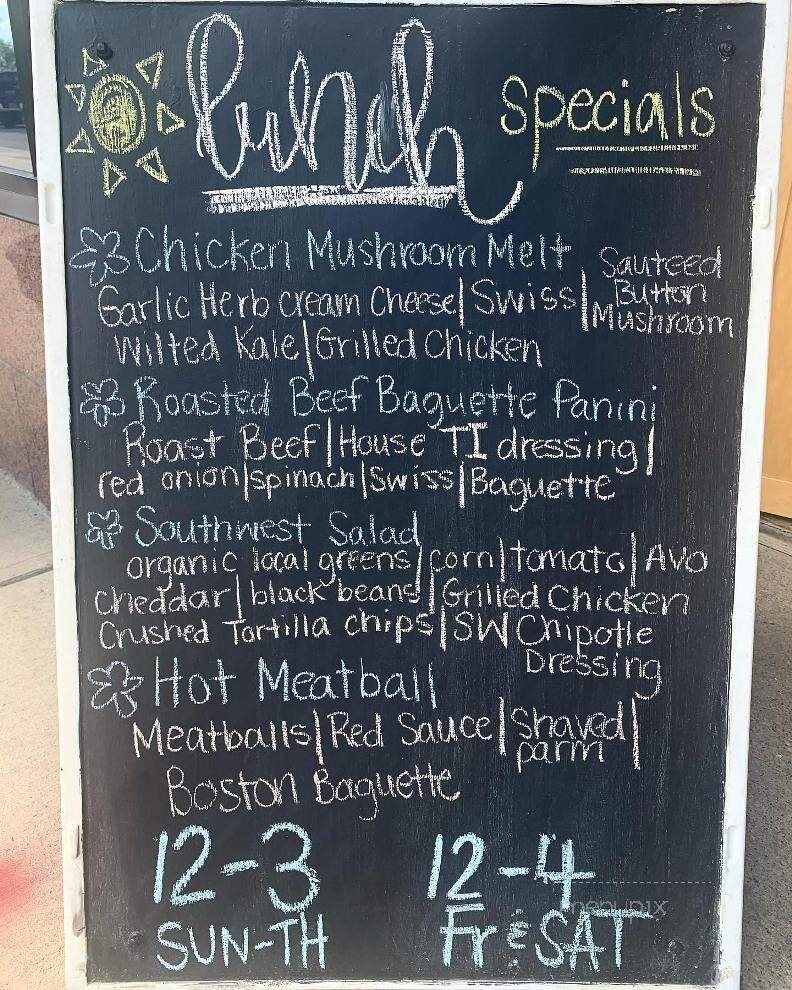 lunch specials
Chicken Mushroom Melt
Garlic Herb cream Cheese | Swiss | Sauteed Button Mushroom
Wilted Kale | Grilled Chicken
Roasted Beef Baguette Panini
Roast Beef | House TI dressing |
red onion | spinach | Swiss | Baguette
Southwest Salad
organic local greens | corn | tomato | Avo
cheddar | black beans | Grilled Chicken
Crushed Tortilla chips | SW Chipotle
Dressing
Hot Meatball
Meatballs | Red Sauce | shaved parm |
Boston Baguette
12-3 12-4
SUN-TH Fr & SAT